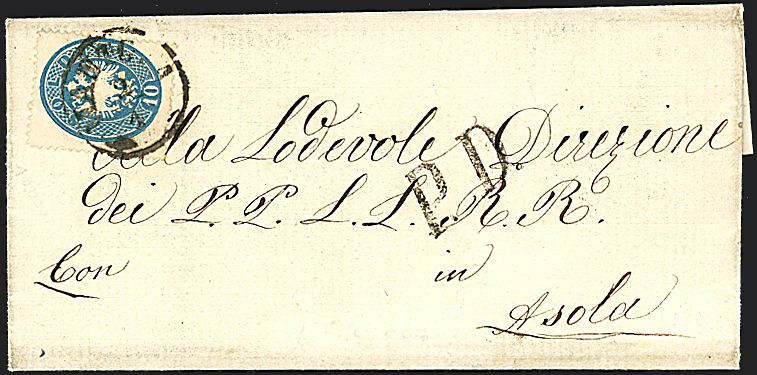 10
P.D.
Alla Lodevole Direzione
dei P. P. L. L. R. R.
Con in
Asola